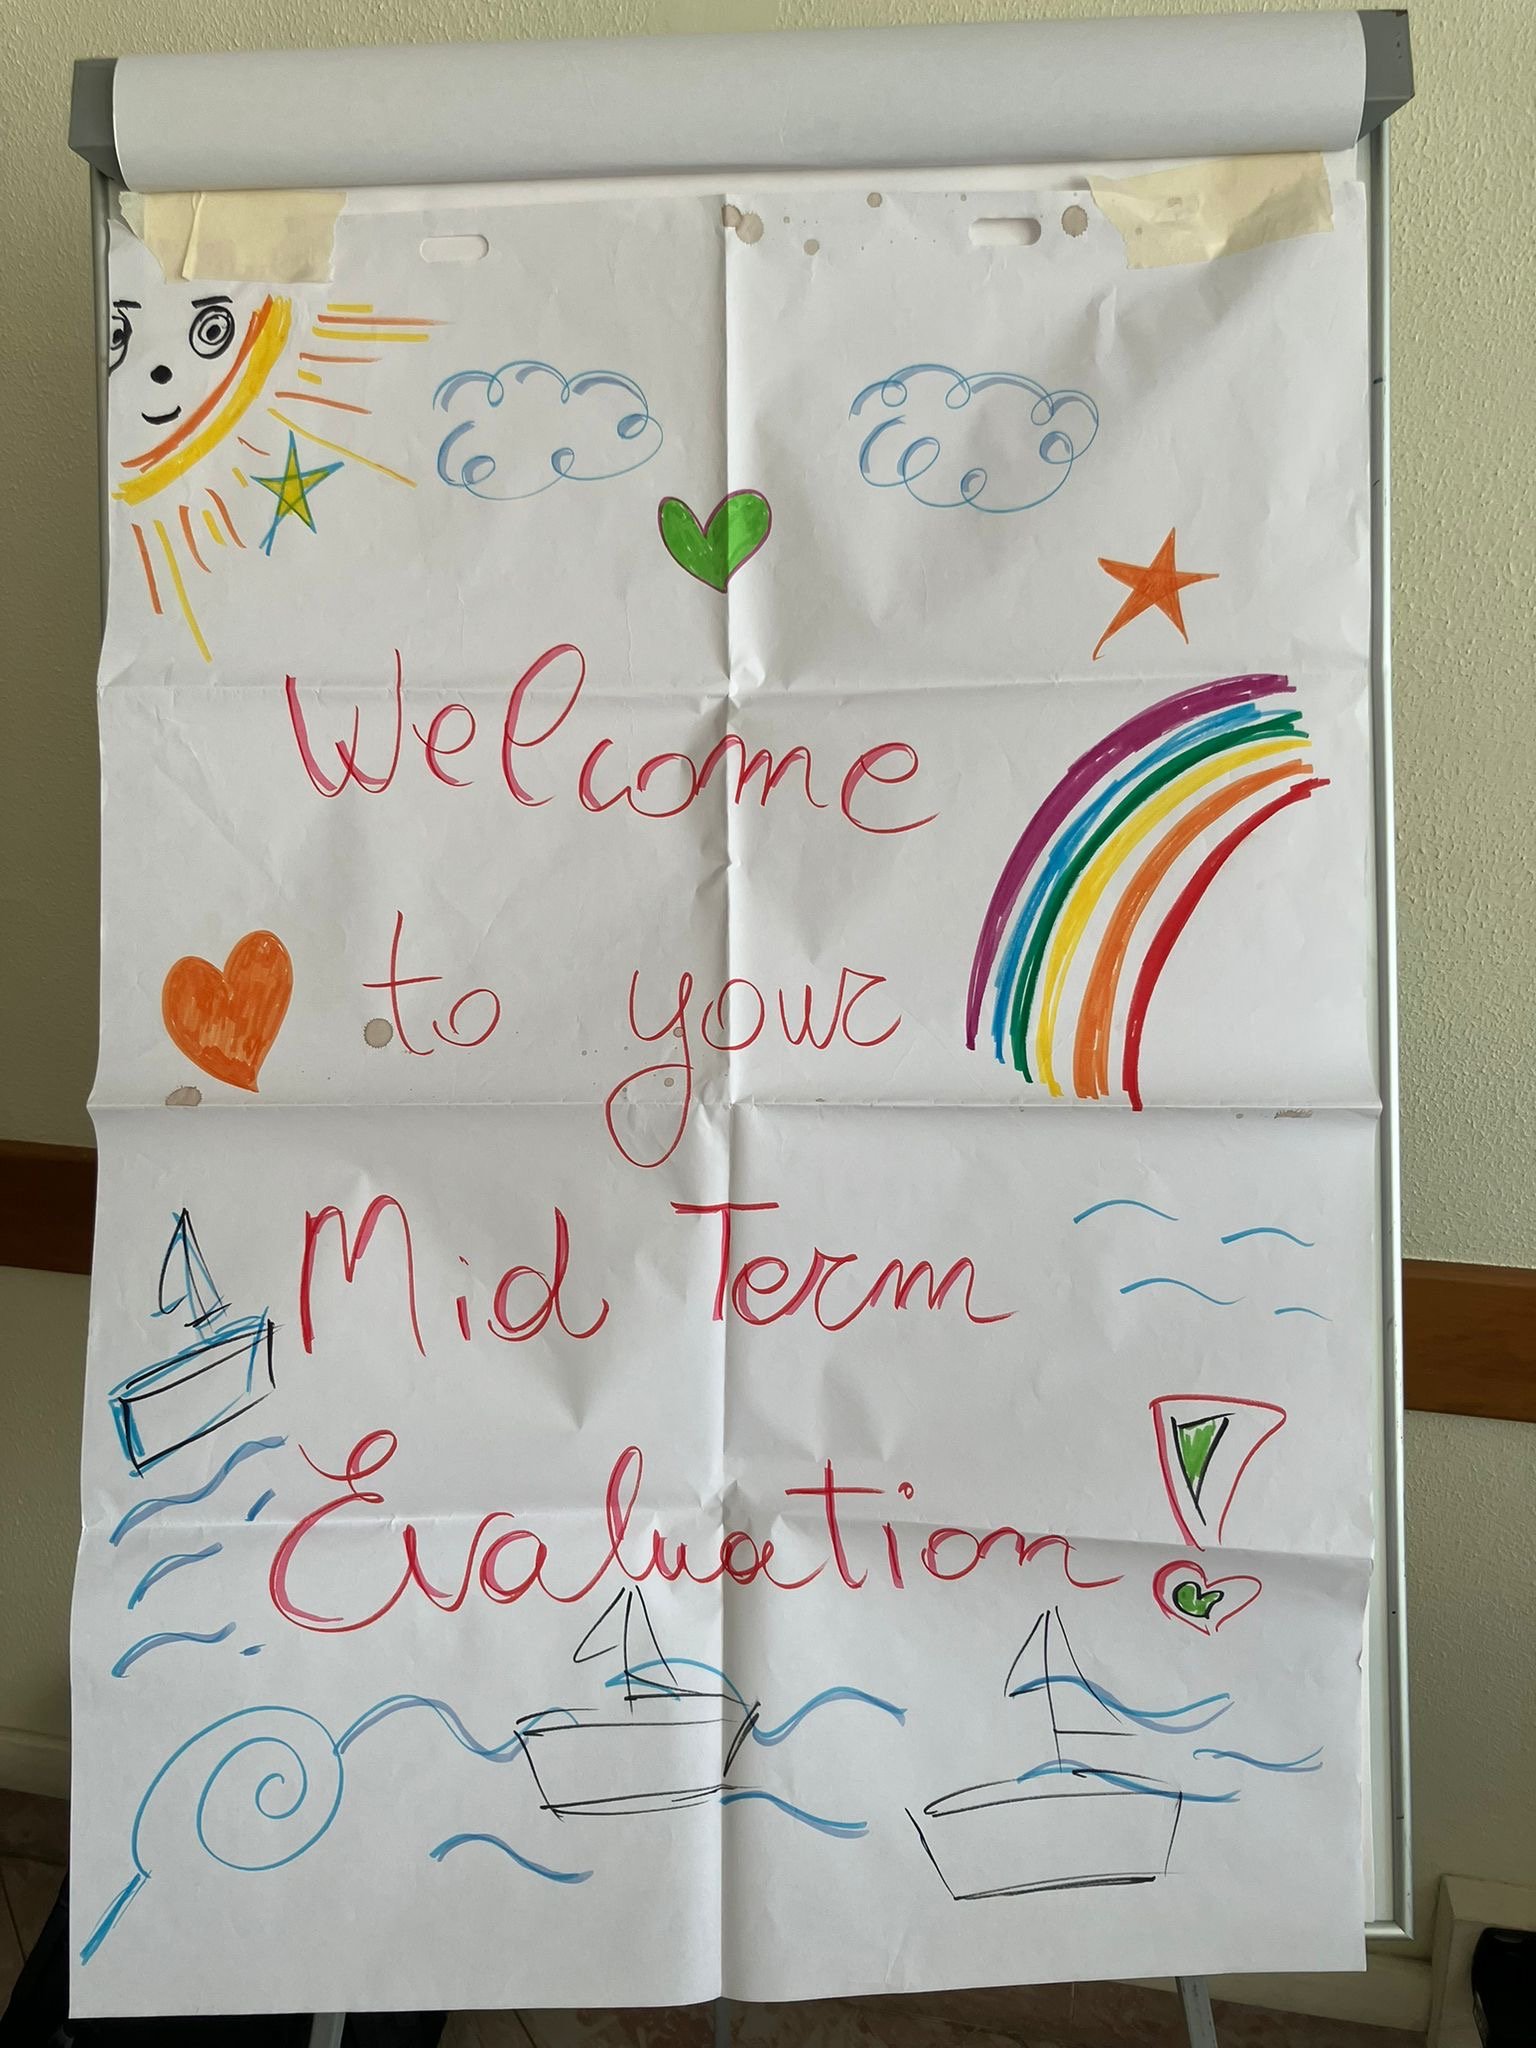 Welcome
to your
Mid Term
Evaluation!